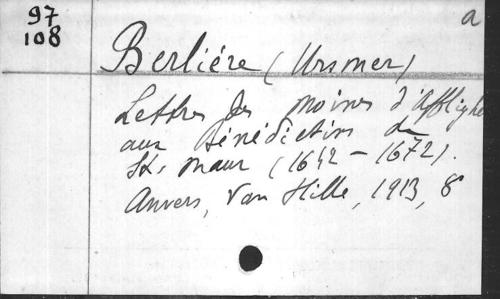 97
108
a
Berlière (Ursmer)
Lettres des moines d'Afflighe
aux Bénédictins de
St. Maur (1642 - 1672).
Anvers, Van Hille, 1913, 8